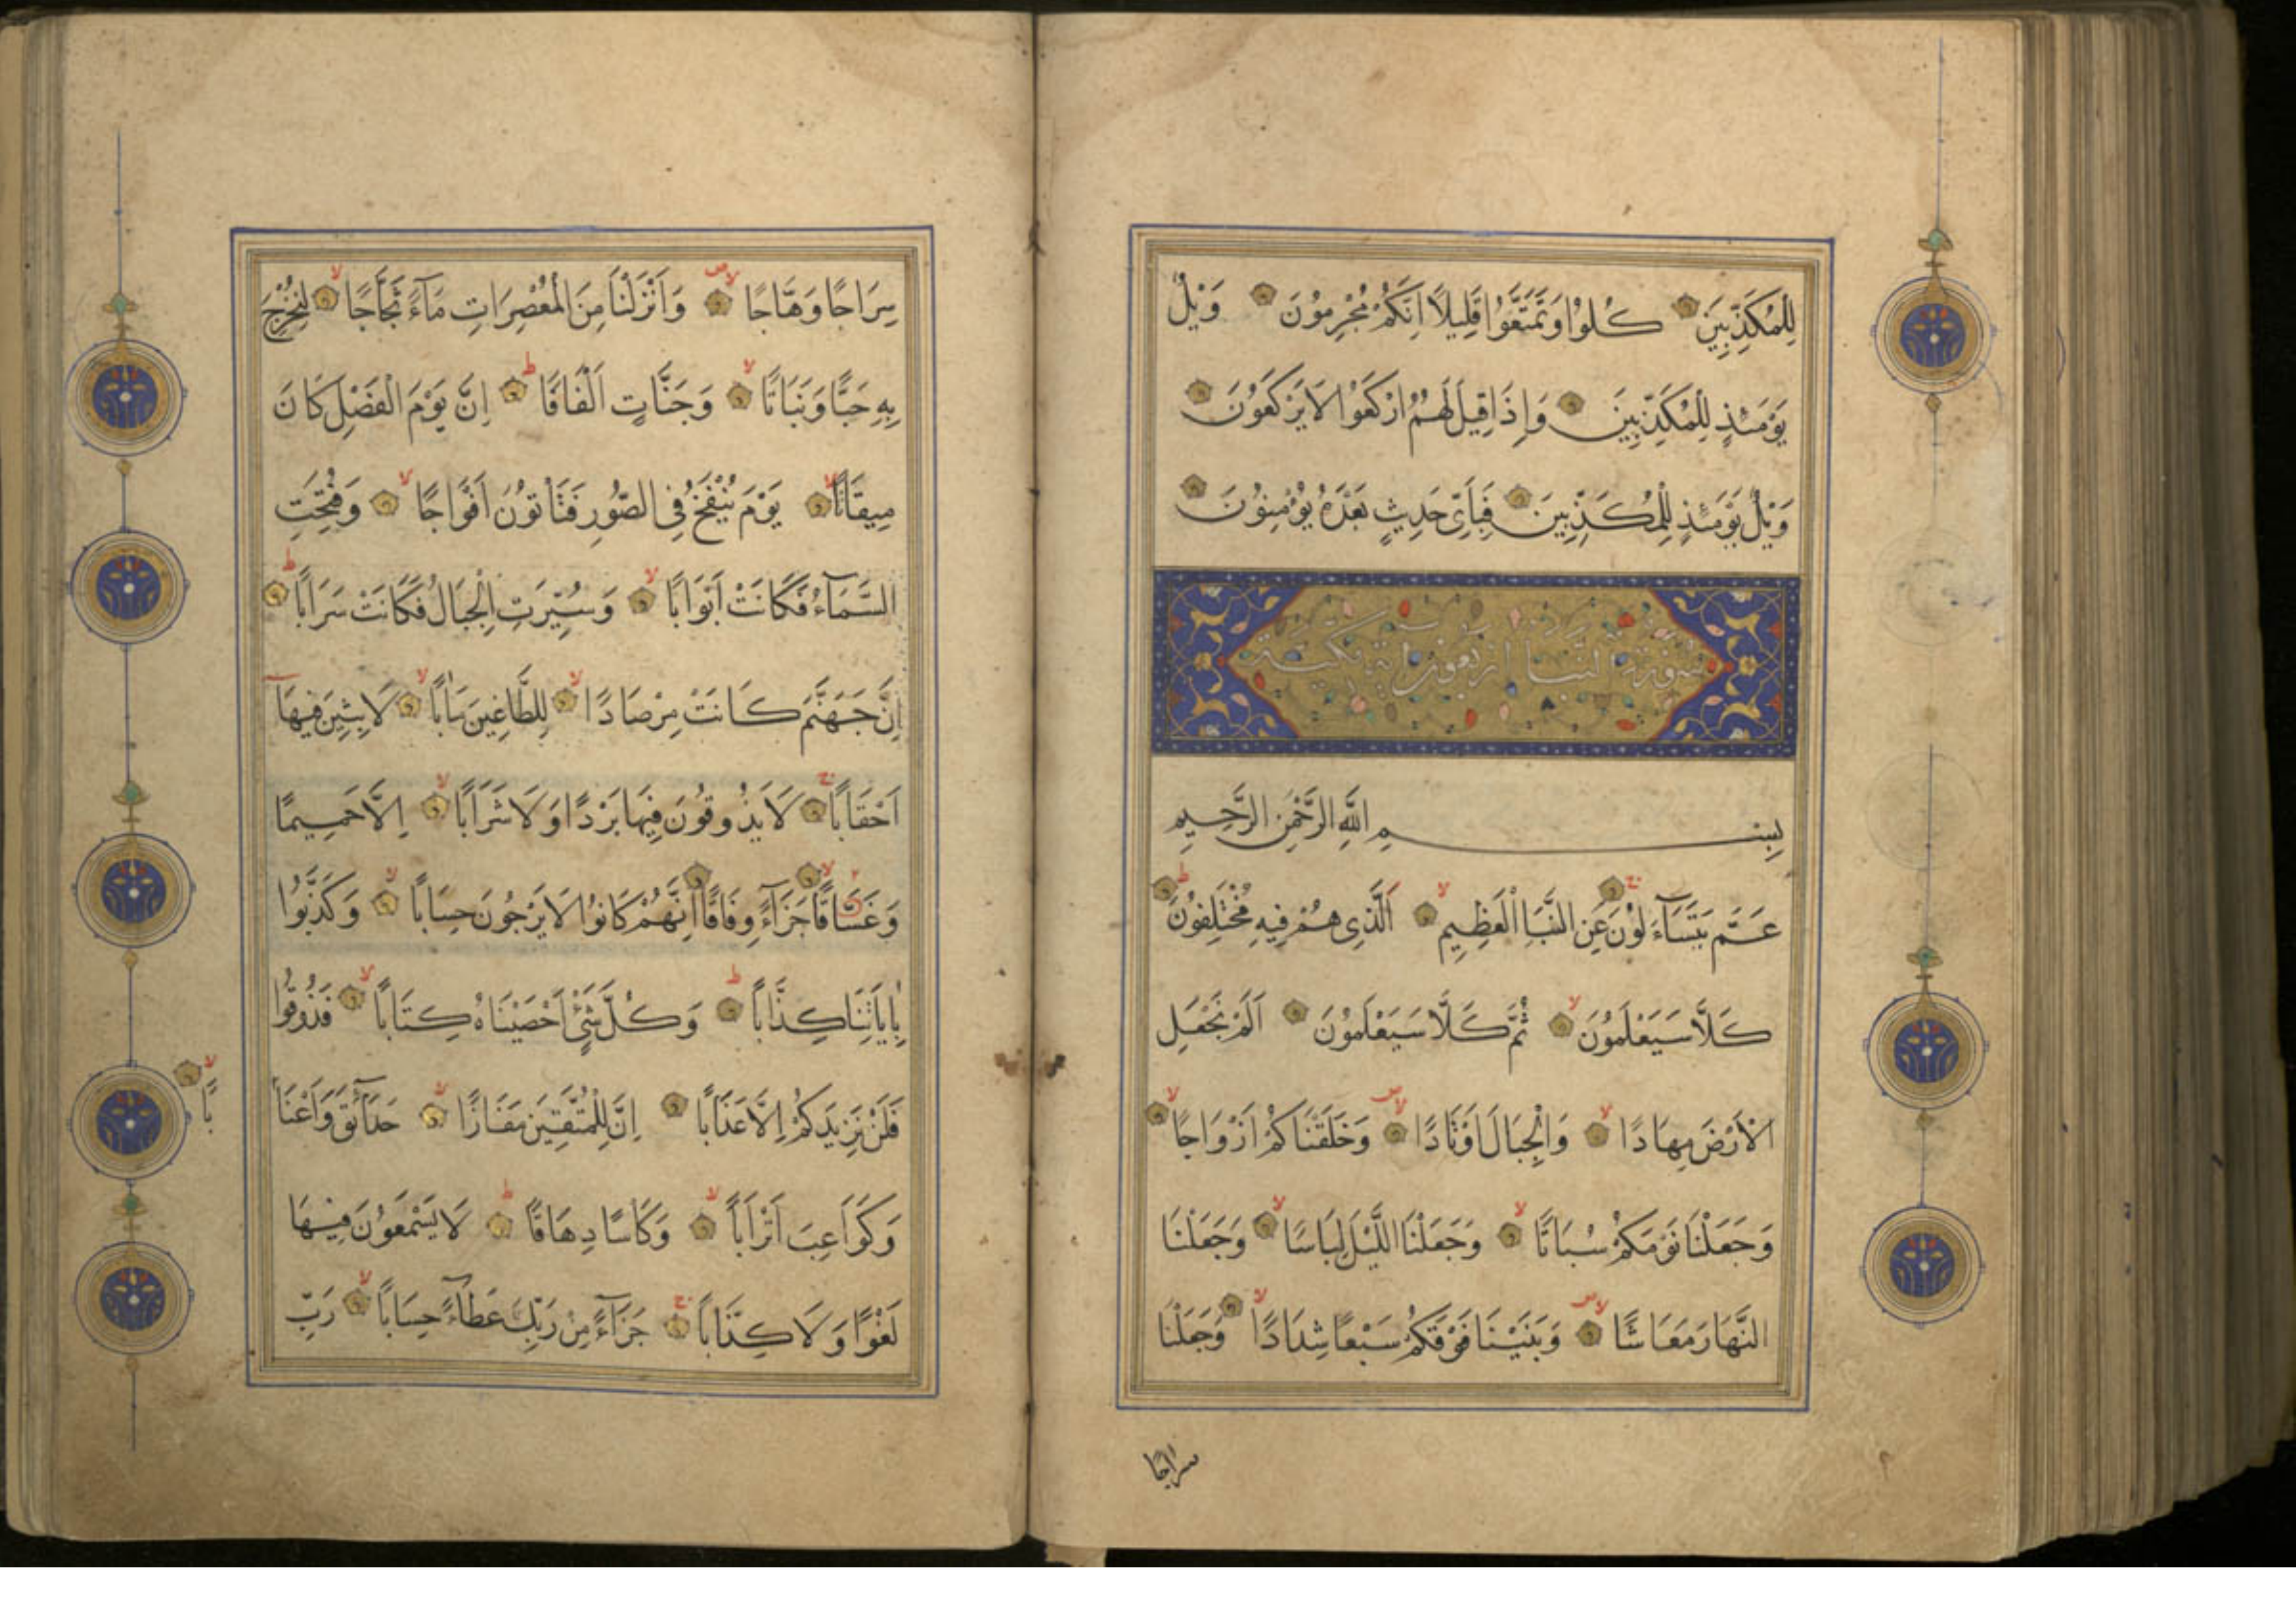 لِلْمُكَذِّبِينَ كُلُوا وَتَمَتَّعُوا قَلِيلًا اِنَّكُمْ مُجْرِمُونَ وَيْلٌ
يَوْمَئِذٍ لِلْمُكَذِّبِينَ وَاِذَا قِيلَ لَهُمُ ارْكَعُوا لَا يَرْكَعُونَ
وَيْلٌ يَوْمَئِذٍ لِلْمُكَذِّبِينَ فَبِاَىِّ حَدِيثٍ بَعْدَهُ يُؤْمِنُونَ
سورة النبأ اربعون اية مكية
بِسْمِ اللّٰهِ الرَّحْمٰنِ الرَّحِيمِ
عَمَّ يَتَسَآءَلُونَ عَنِ النَّبَاِ الْعَظِيمِ اَلَّذِى هُمْ فِيهِ مُخْتَلِفُونَ
كَلَّا سَيَعْلَمُونَ ثُمَّ كَلَّا سَيَعْلَمُونَ اَلَمْ نَجْعَلِ
الْاَرْضَ مِهَادًا وَالْجِبَالَ اَوْتَادًا وَخَلَقْنَاكُمْ اَزْوَاجًا
وَجَعَلْنَا نَوْمَكُمْ سُبَاتًا وَجَعَلْنَا اللَّيْلَ لِبَاسًا وَجَعَلْنَا
النَّهَارَ مَعَاشًا وَبَنَيْنَا فَوْقَكُمْ سَبْعًا شِدَادًا وَجَعَلْنَا
سراجا
سِرَاجًا وَهَّاجًا وَاَنْزَلْنَا مِنَ الْمُعْصِرَاتِ مَآءً ثَجَّاجًا لِنُخْرِجَ
بِهِ حَبًّا وَنَبَاتًا وَجَنَّاتٍ اَلْفَافًا اِنَّ يَوْمَ الْفَصْلِ كَانَ
مِيقَاتًا يَوْمَ يُنْفَخُ فِى الصُّورِ فَتَاْتُونَ اَفْوَاجًا وَفُتِحَتِ
السَّمَآءُ فَكَانَتْ اَبْوَابًا وَسُيِّرَتِ الْجِبَالُ فَكَانَتْ سَرَابًا
اِنَّ جَهَنَّمَ كَانَتْ مِرْصَادًا لِلطَّاغِينَ مَاٰبًا لَابِثِينَ فِيهَآ
اَحْقَابًا لَا يَذُوقُونَ فِيهَا بَرْدًا وَلَا شَرَابًا اِلَّا حَمِيمًا
وَغَسَّاقًا جَزَآءً وِفَاقًا اِنَّهُمْ كَانُوا لَا يَرْجُونَ حِسَابًا وَكَذَّبُوا
بِاٰيَاتِنَا كِذَّابًا وَكُلَّ شَىْءٍ اَحْصَيْنَاهُ كِتَابًا فَذُوقُوا
فَلَنْ نَزِيدَكُمْ اِلَّا عَذَابًا اِنَّ لِلْمُتَّقِينَ مَفَازًا حَدَآئِقَ وَاَعْنَا
بًا
وَكَوَاعِبَ اَتْرَابًا وَكَاْسًا دِهَاقًا لَا يَسْمَعُونَ فِيهَا
لَغْوًا وَلَا كِذَّابًا جَزَآءً مِنْ رَبِّكَ عَطَآءً حِسَابًا رَبِّ